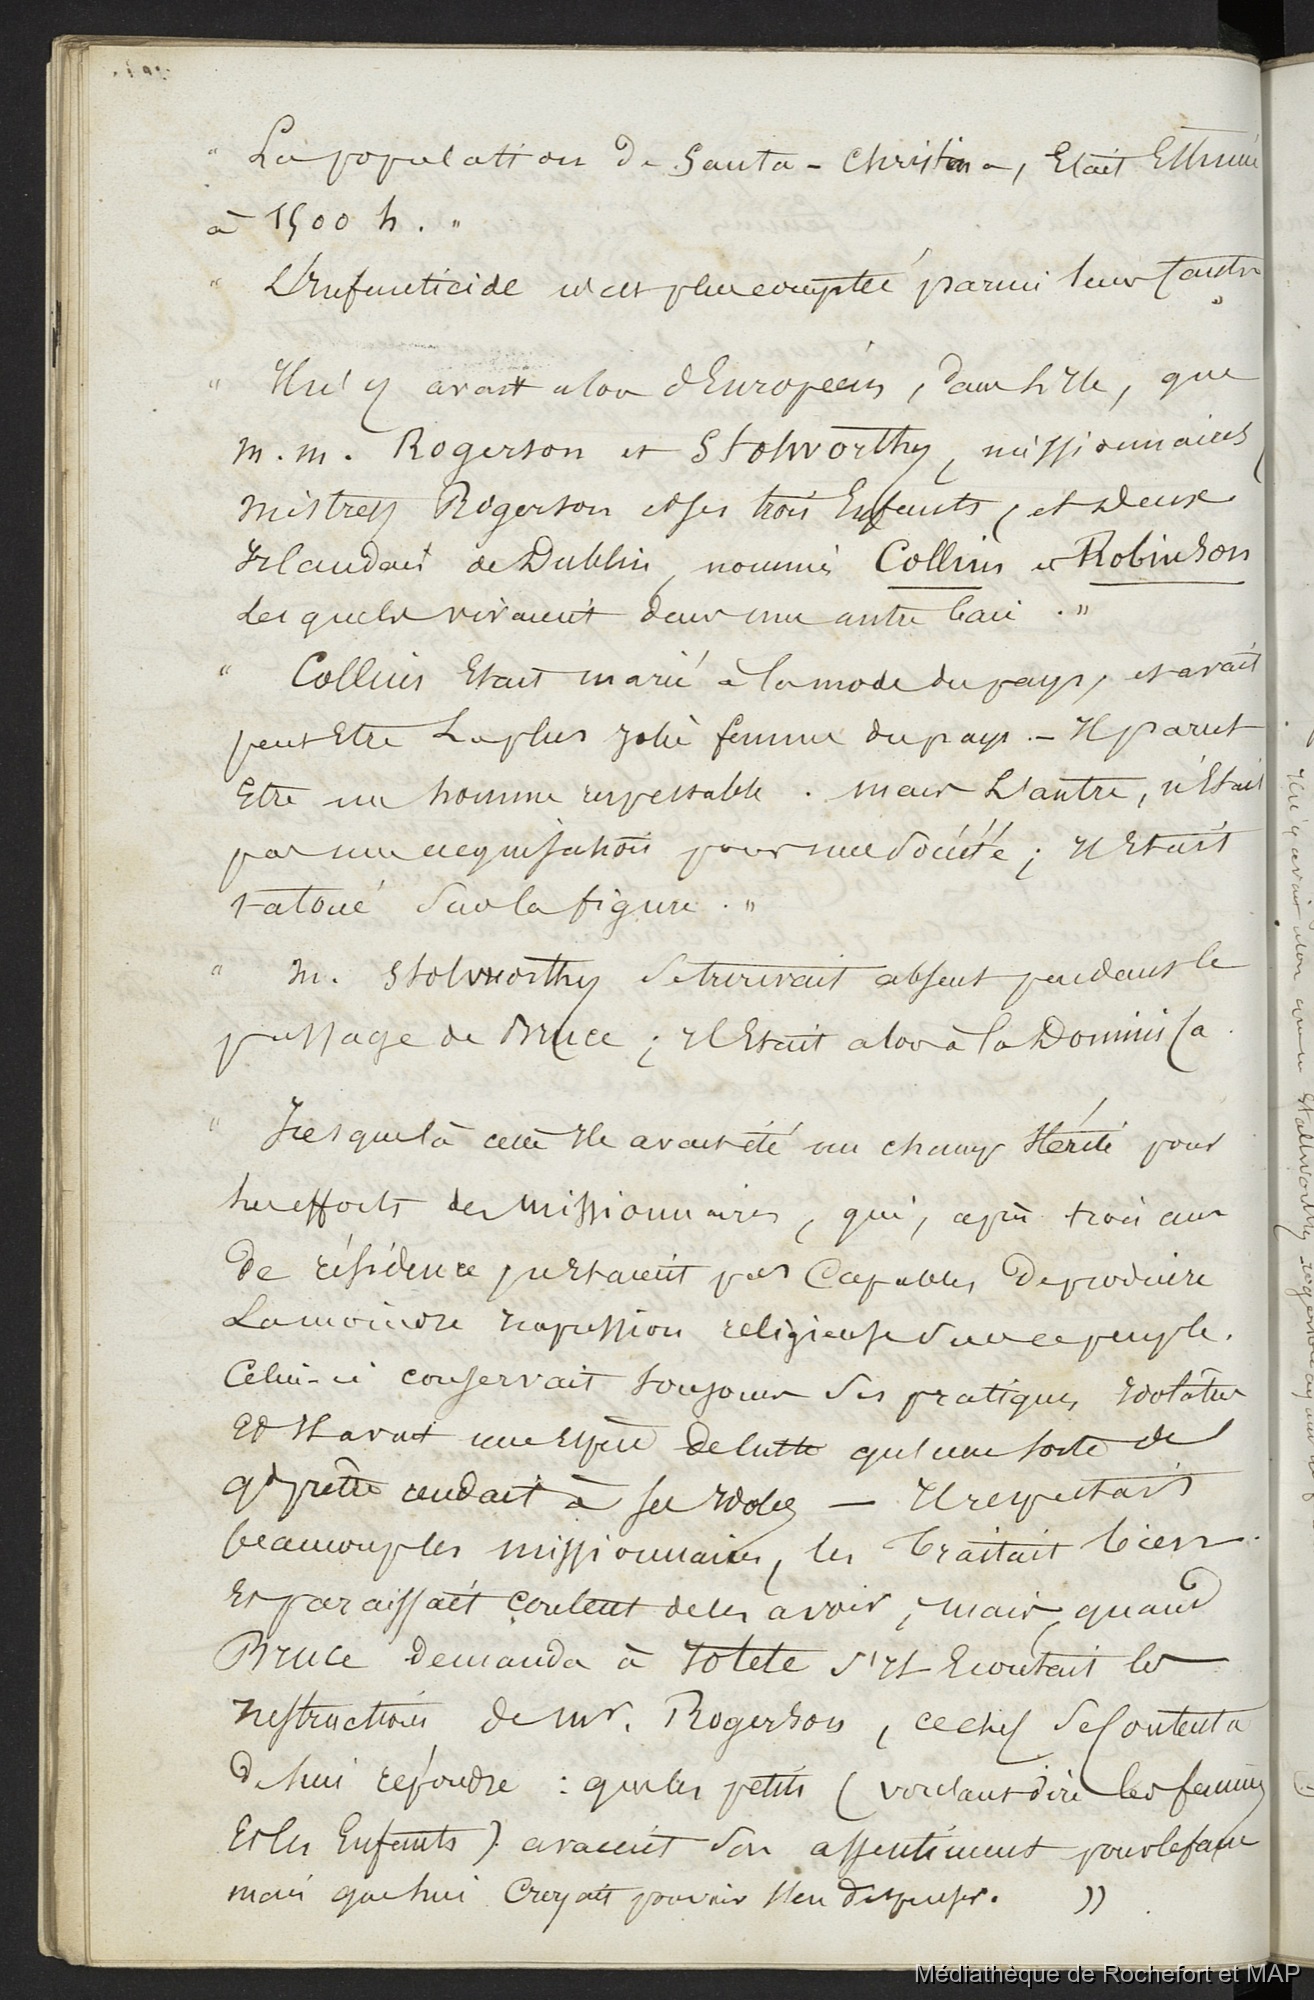 " La population de Santa-Christina, Etait Estimée
à 1500 h. "
" L'Infanticide n'est plus comptée parmi leurs
"
" Il n'y avait alors d'Européens, dans l'Ile, que
m. m. Rogerson et Stolworthy, missionnaires,
mistress Rogerson et ses trois Enfants, et deux
Irlandais de Dublin, nommés Collins et Robinson
Lesquels vivaient dans une autre baie . "
" Collins Etait marié à la mode du pays, et avait
peut Etre La plus jolie femme du pays. - Il parut
Etre un homme respectable . mais L'autre, n'Etait
pas une acquisition pour une Société ; Il Etait
tatoué Sur la figure . "
" M. Stolworthy Se trouvait absent pendant le
passage de Bruce ; Il Etait alors à la Dominica .
" Jusques là cette Ile avait été un champ Stérile pour
les efforts des Missionnaires, qui, après trois ans
de résidence n'Etaient pas Capables De produire
La moindre Impression religieuse Sur ce peuple.
Celui-ci conservait toujours Ses pratiques Idolâtres
Et Il avait une Espèce de lutte qu'une sorte de
Gd prêtre rendait à ses Idoles — Il respectait
beaucoup les missionnaires, les Traitait bien
Et paraissait content de les avoir ; mais, quand
Bruce demanda à Iotete S'Il Ecoutait les
Instructions de Mr. Rogerson, ce chef Se Contenta
De lui répondre : que les petits (voulant dire les femmes
Et les Enfants) avaient Son assentiment pour le faire
mais que lui Croyait pouvoir s'en dispenser. "
Il n'y avait alors que m. Stallworthy
Médiathèque de Rochefort et MAP